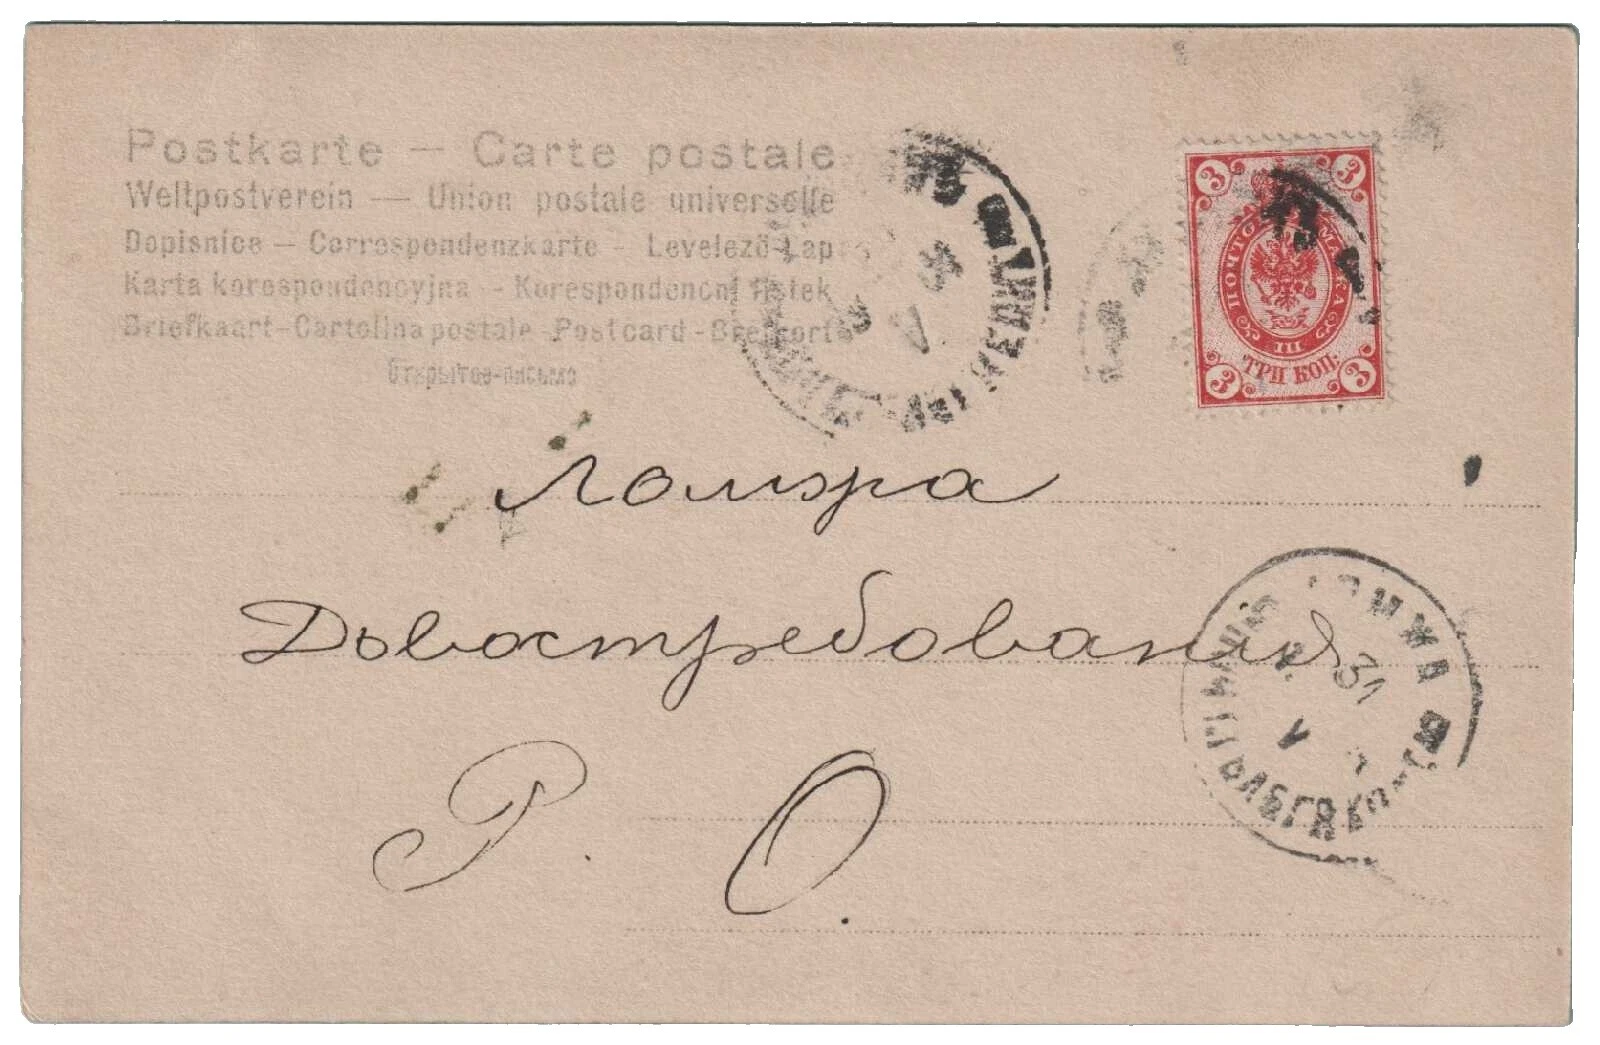 Postkarte — Carte postale
Weltpostverein — Union postale universelle
Dopisnice — Correspondenzkarte — Levelező-Lap
Karta korespondencyjna - Korespondencni listek
Briefkaart-Cartolina postale-Postcard-Brefkort
Открытое-письмо
3 3
ПОЧТОВАЯ МАРКА
III
ТРИ КОП.
3 3
Ломжа
Довостребования
Р. О.
ЛОМЖА